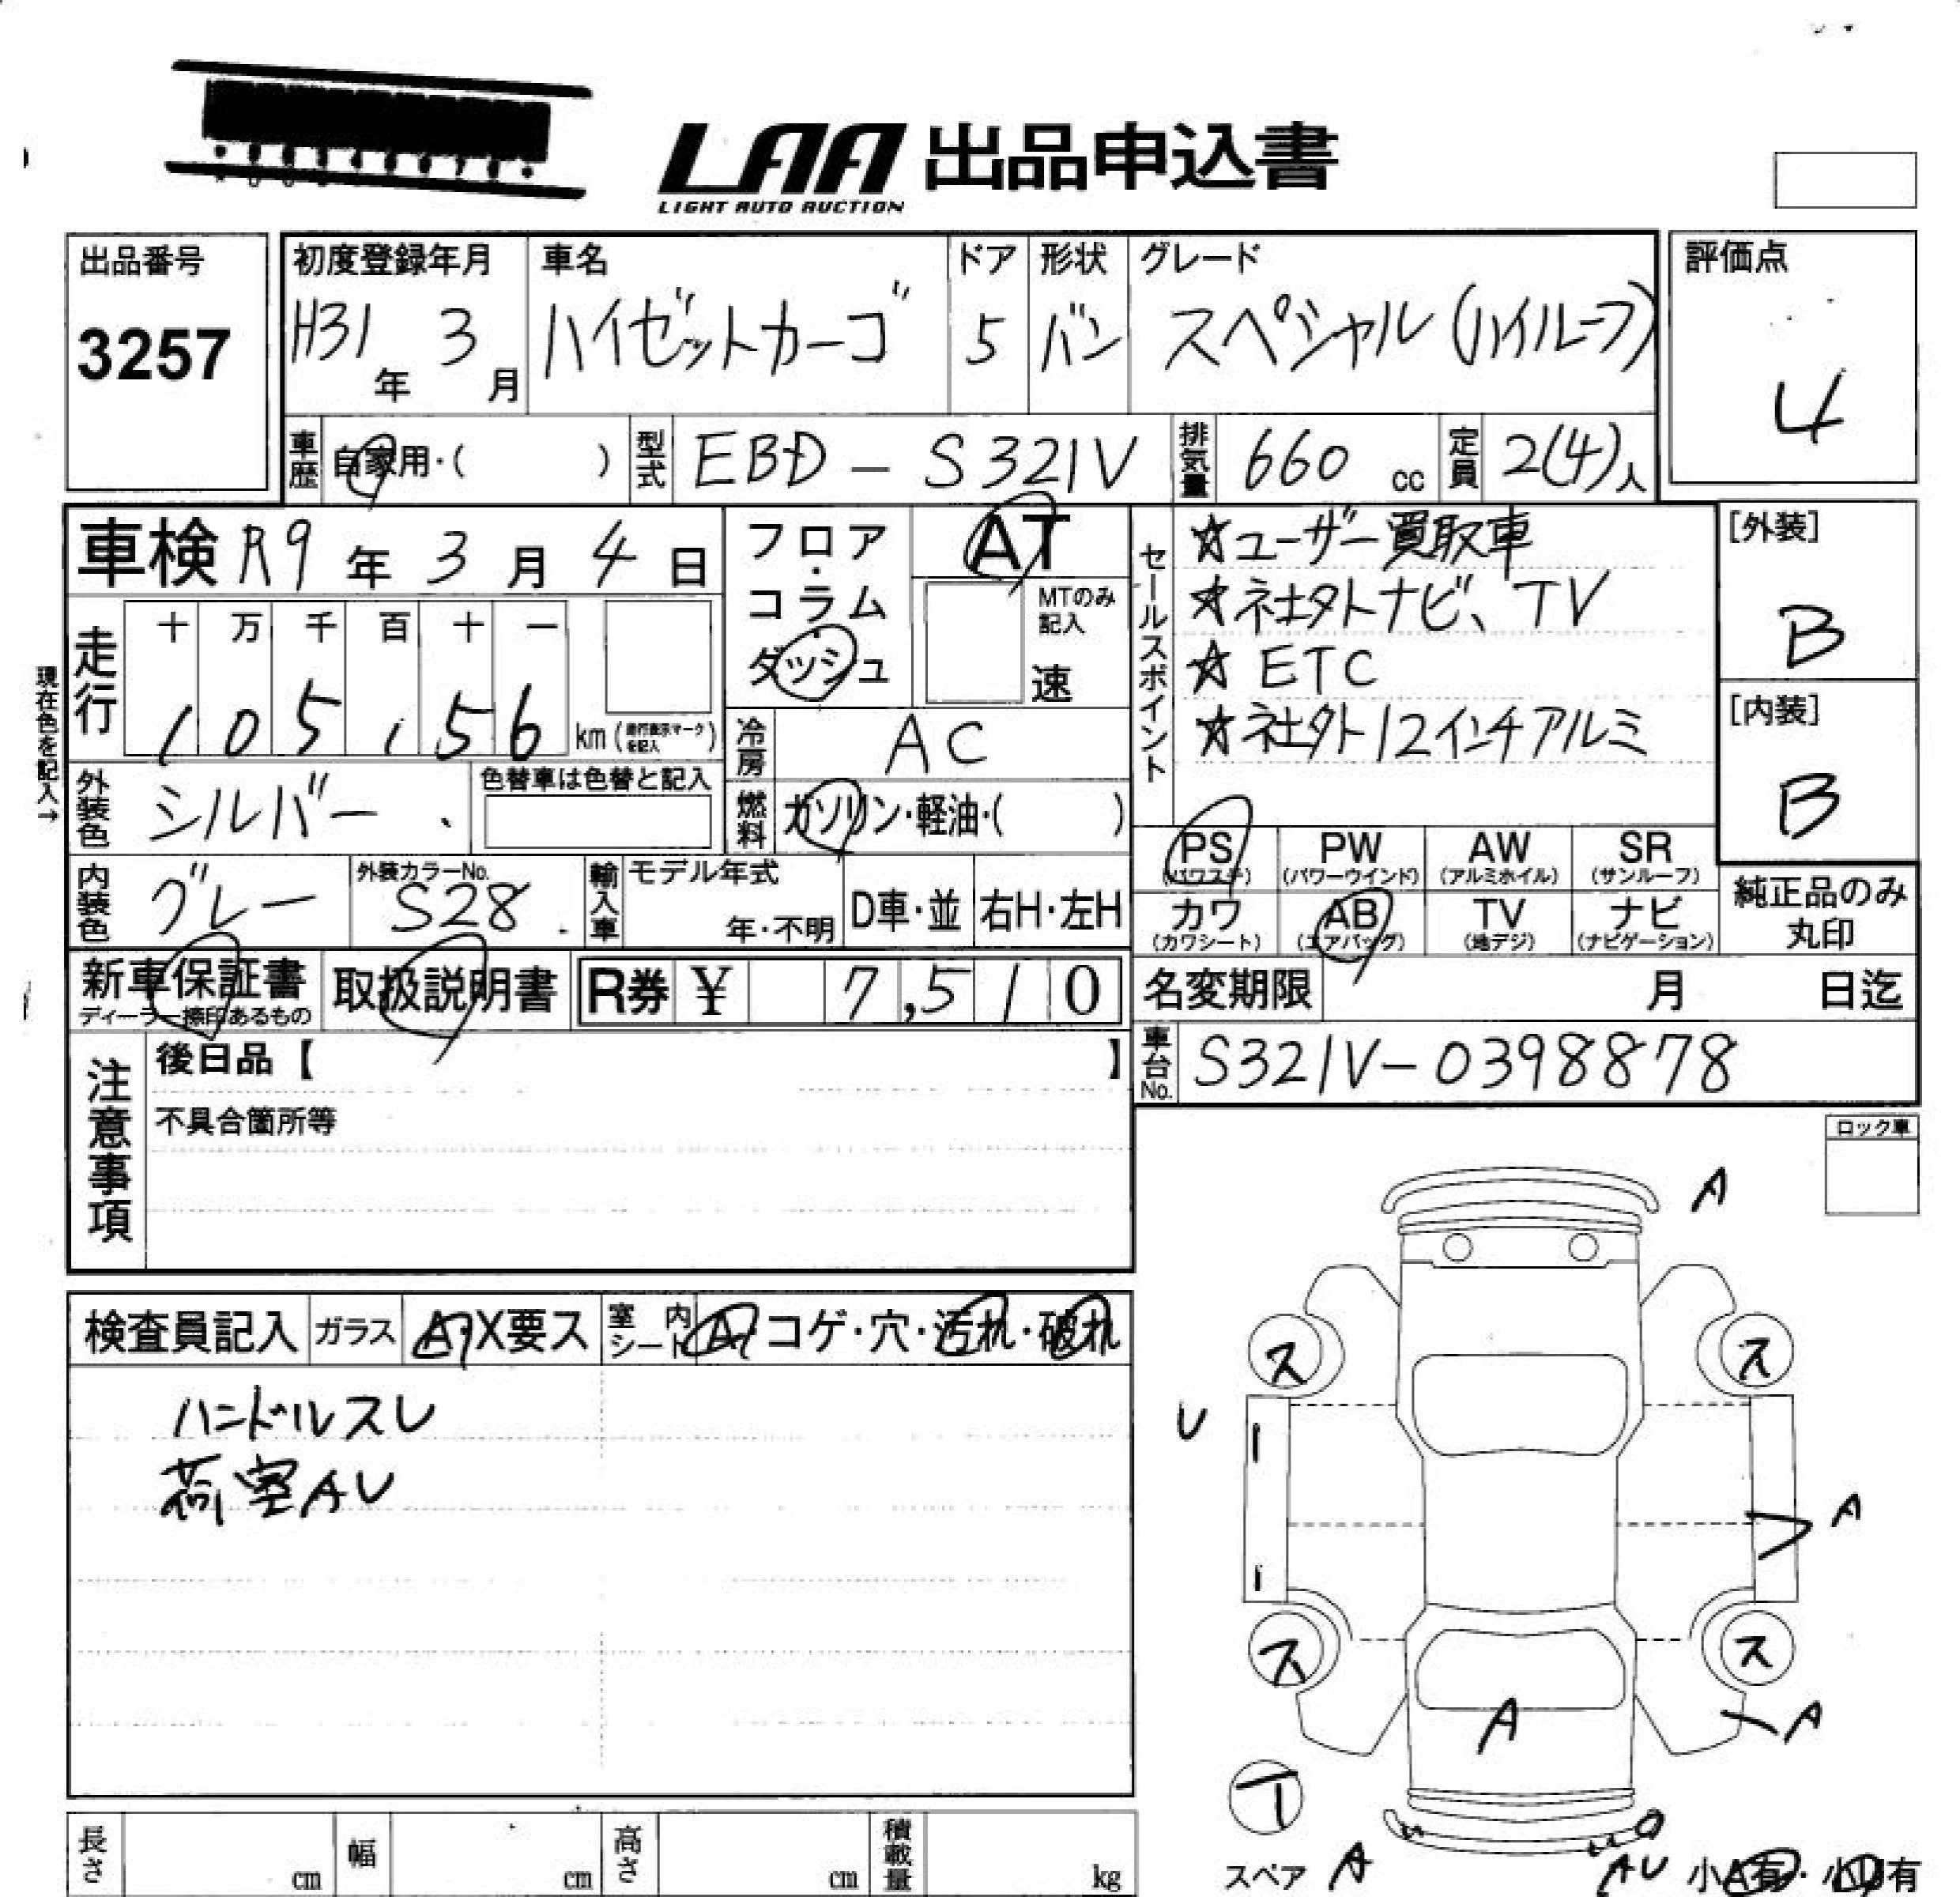 LAA 出品申込書
LIGHT AUTO AUCTION
出品番号
3257
初度登録年月
H31年 3月
車名
ハイゼットカーゴ
ドア
5
形状
バン
グレード
スペシャル(ハイルーフ)
評価点
4
車歴 自家用・( )
型式 EBD-S321V
排気量 660 cc
定員 2(4)人
車検 R9年 3月 4日
フロア・コラム・ダッシュ
AT
MTのみ記入
速
走行
十 万 千 百 十 一
1 0 5 1 5 6 km(走行表示マークを記入)
現在色を記入→
冷房 AC
外装色 シルバー
色替車は色替と記入
燃料 ガソリン・軽油・( )
内装色 グレー
外装カラーNo.
S28
輸入車
モデル年式
年・不明
D車・並
右H・左H
セールスポイント
☆ユーザー買取車
☆社外ナビ、TV
☆ETC
☆社外12インチアルミ
[外装]
B
[内装]
B
PS (パワステ)
PW (パワーウインド)
AW (アルミホイル)
SR (サンルーフ)
カワ (カワシート)
AB (エアバッグ)
TV (地デジ)
ナビ (ナビゲーション)
純正品のみ丸印
新車保証書
ディーラー捺印あるもの
取扱説明書
R券 ¥ 7,510
名変期限 月 日迄
車台No. S321V-0398878
注意事項
後日品【 】
不具合箇所等
ロック車
検査員記入
ガラス A・X要ス
室内シート A・コゲ・穴・汚れ・破れ
ハンドルスレ
荷室AU
A
ス ス
U
A
ス ス
A
A
スペア A
AU
小A有・小U有
長さ cm
幅 cm
高さ cm
積載量 kg